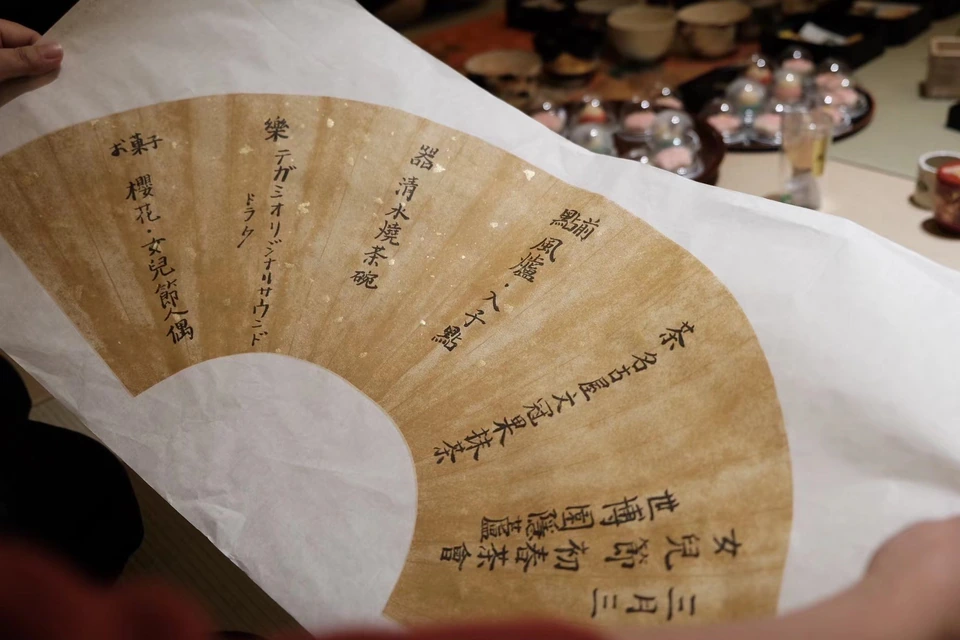 三月三
女兒節初春茶會
世博園隱蘆
茶 名古屋文冠果抹茶
點前 風爐・入子點
器 清水燒茶碗
樂 テガミオリジナルサウンド
ドラク
お菓子 櫻花・女兒節人偶